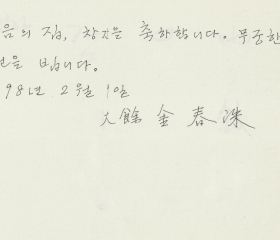 음의 집, 창간을 축하합니다. 무궁한
전을 빕니다.
98년 2월 1일
大餘 金春洙